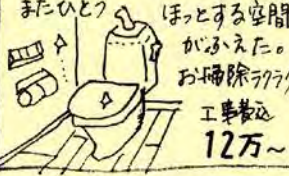 またひとつ
ほっとする空間
がふえた。
お掃除ラクラク
工事費込
12万～